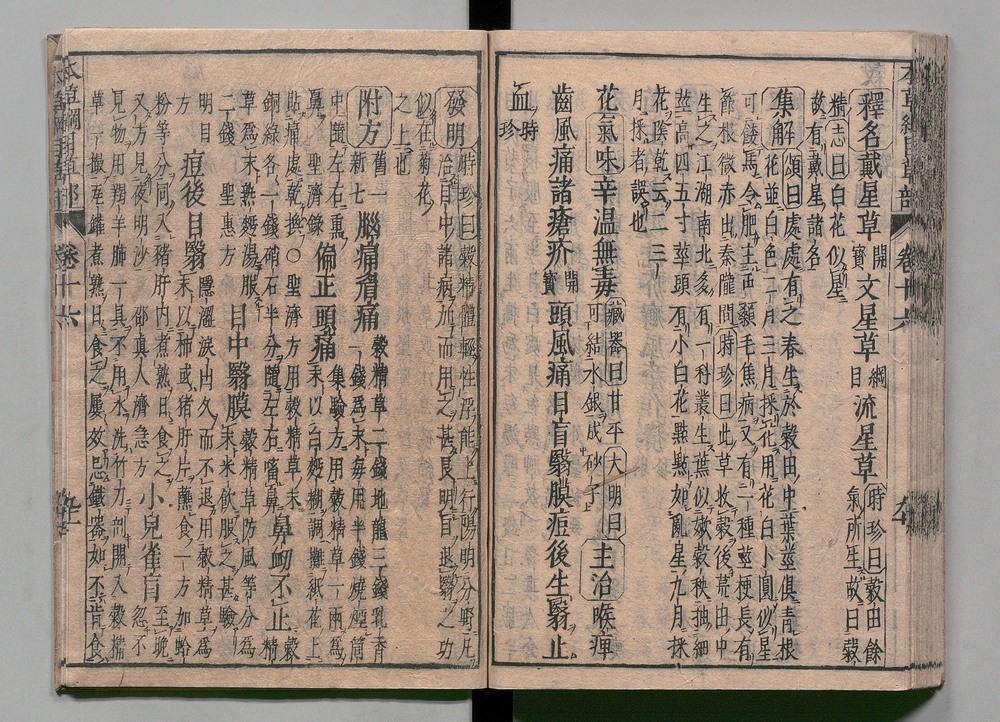 釋名戴星草開寶文星草綱目流星草時珍曰穀田餘氣所生故曰穀
精志曰白花似星故有戴星諸名
集解頌曰處處有之春生於穀田中葉莖俱青根
花並白色二月三月採花用花白小圓似星
可餧馬令肥主䖝顙毛焦病又有一種莖梗長有
節根微赤出秦隴間時珍曰此草收穀後荒田中
生之江湖南北多有一科叢生葉似嫩穀秧抽細
莖高四五寸莖頭有小白花點點如亂星九月採
花陰乾云二三
月採者誤也
花氣味辛温無毒藏器曰甘平大明曰可結水銀成砂子主治喉痺
齒風痛諸瘡疥開寶頭風痛目盲翳膜痘後生翳止
血時珍
發明時珍曰穀精體輕性浮能上行陽明分野凡
治目中諸病加而用之甚良明目退翳之功
似在菊花
之上也
附方舊一新七腦痛眉痛穀精草二錢地龍三錢乳香
一錢爲末每用半錢燒煙筒
中隨左右熏
鼻聖濟錄偏正頭痛集驗方用穀精草一兩爲
末以白麪糊調攤紙花上
貼痛處乾換○聖濟方用穀精草末
銅綠各一錢硝石半分隨左右㗜鼻鼻衄不止穀精
草爲末熟麪湯服
二錢聖惠方目中翳膜穀精草防風等分爲
末米飲服之甚驗
明目
方痘後目翳隱澀淚出久而不退用穀精草爲
末以柿或猪肝片蘸食一方加蛤
粉等分同入猪肝内煮熟日食之
又方見夜明沙邵真人濟急方小兒雀盲至晚忽不
見物用羯羊肺一具不用水洗竹刀剖開入穀精
草一撮瓦罐煮熟日食之屢效忌鐵器如不肯食
本草綱目草部
卷十六